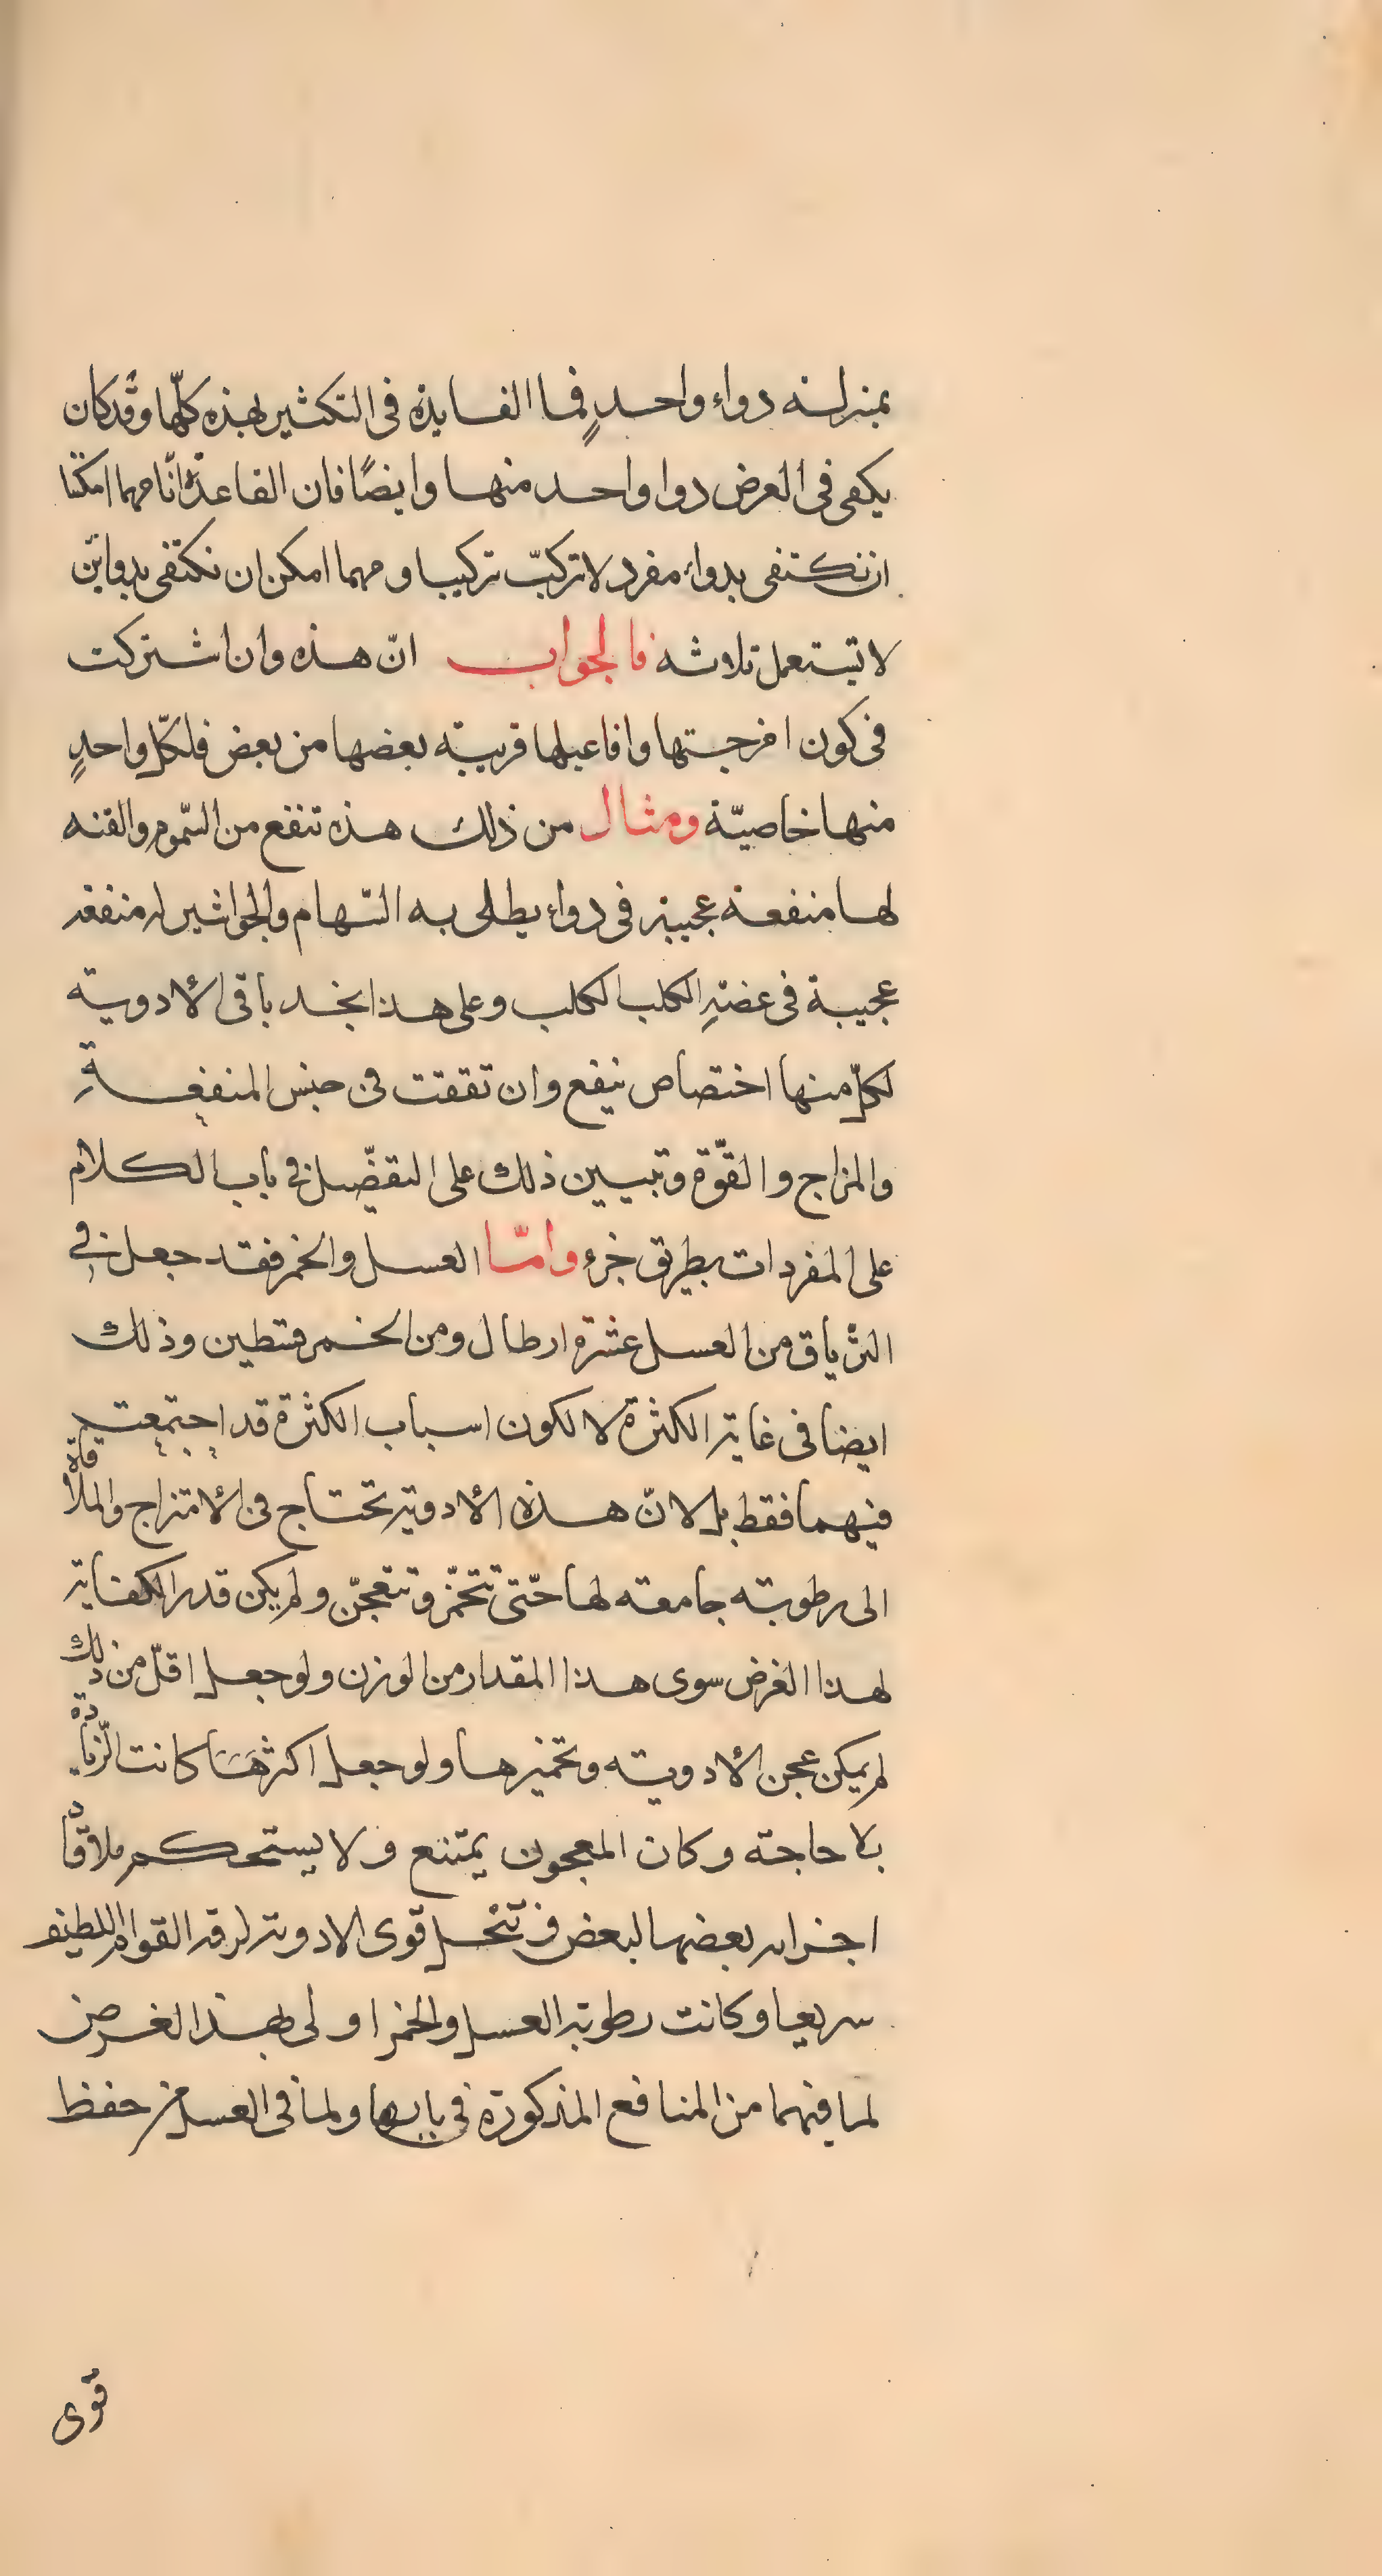 بمنزلة دواء واحدٍ فما الفايدة فى التكثير بهذه كلّها وقد كان
يكفى فى العرض دوا واحد منها وايضًا فان القاعدة انّا مهما امكننا
ان نكتفى بدواء مفرد لا تركبّ تركيبا ومهما امكن ان نكتفى بدوايّن
لا تستعمل ثلاثه فالجواب انّ هذه وان اشتركت
فى كون امزجتها وافاعيلها قريبة بعضها من بعض فلكلّ واحدٍ
منها خاصيّة ومثال من ذلك هذه تنفع من السّموم والقنه
لها منفعة عجيبة فى دواء يطلى به السّهام والجواشير له منفعة
عجيبة فى عضّةِ الكلب الكلب وعلى هذا بخد باقى الأدوية
لكلّ منها اختصاص نيفع وان تققت فى جنس المنفعةِ
والمزاج والقوّة وتبيين ذلك على التقضّيل فى باب الكلام
على المفردات بطريق خرء وامّا العسل والخمر فقد جعل فى
الترياق من العسل عشرة ارطال ومن الخمر قسطين وذلك
ايضا فى غاية الكثرة لا لكون اسباب الكثرة قد اجتمعت
فيهما فقط بل لانّ هذه الأدوية تحتاج فى الأمتزاج والملاقاة
الى رطوبته جامعته لها حتّى تتخمّر وتتعجّن ولم يكن قدر الكفاية
لهذا الغرض سوى هذا المقدار من الوزن ولو جعل اقلّ من ذلك
لم يمكن عجن الأدوية وتخميرها ولو جعل اكثرها كانت الزّيادة
بلا حاجة وكان المعجون يمتنع ولا يستحكم ملاقاة
اجزاء بعضها لبعض فتنحل قوى الادوية لرقة القوام اللطيف
سريعا وكانت رطوبة العسل والخمر اولى بهذا الغرض
لما فيهما من المنافع المذكورة فى بابها ولما فى العسل من حفظ
قوى